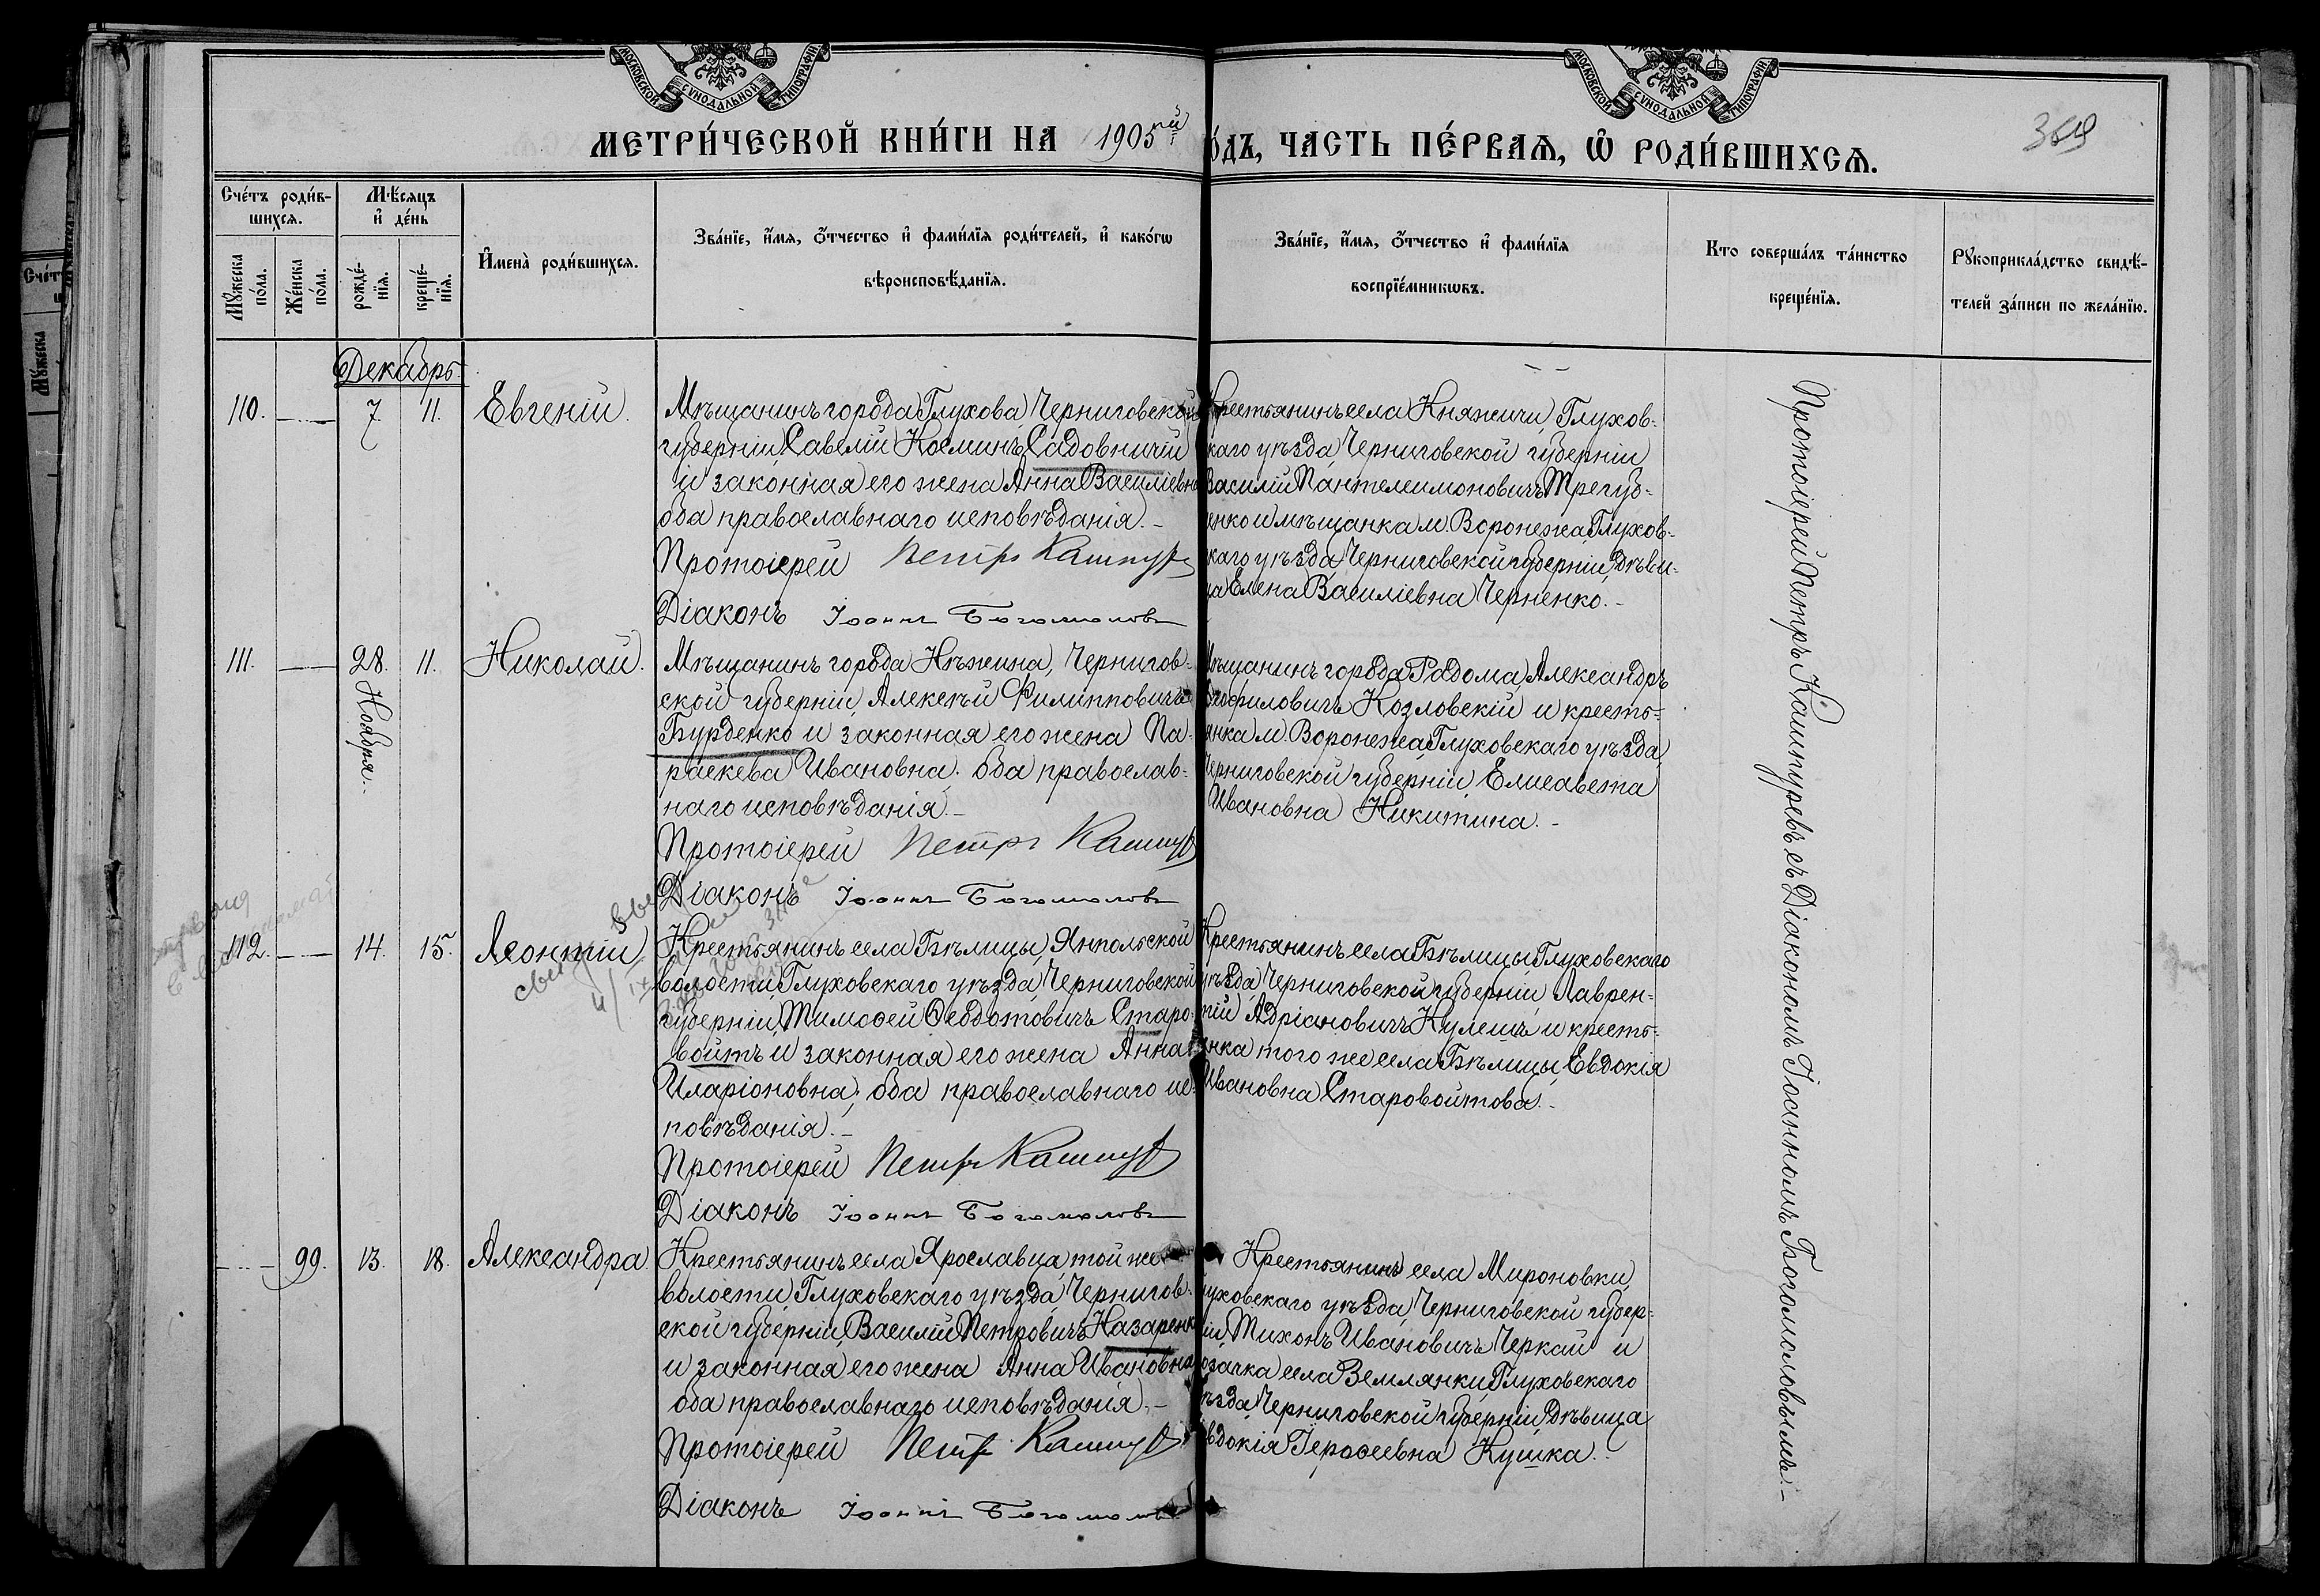 МОСКОВСКОЙ СѴНОДАЛЬНОЙ ТИПОГРАФІИ
МОСКОВСКОЙ СѴНОДАЛЬНОЙ ТИПОГРАФІИ
МЕТРИ́ЧЕСКОЙ КНИ́ГИ НА 1905ый
́ОДЪ, ЧАСТЬ ПЕ́РВАѦ, Ѡ҆ РОДИ́ВШИХСѦ.
Сче́тъ роди́в-
шихсѧ.
Мѣ́сяцъ
и҆ де́нь
Мꙋ́жеска
по́ла.
Же́нска
по́ла.
рожде́-
нїѧ.
креще́-
нїѧ.
И҆мена̀ роди́вшихсѧ.
Зва́нїе, и҆́мѧ, ѻ҆́тчество и҆ фами́лїѧ роди́телей, и҆ како́гѡ
вѣроисповѣ́данїѧ.
Зва́нїе, и҆́мѧ, ѻ҆́тчество и҆ фами́лїѧ
воспрїе́мникѡвъ.
Кто соверша́лъ та́инство
креще́нїѧ.
Рꙋкоприкла́дство свидѣ́-
телей за́писи по жела́нїю.
Декабрь.
110. — 7. 11. Евгеній.
Мѣщанинъ города Глухова, Черниговской
губерніи, Савелій Косминъ Садовничій
и законная его жена Анна Василіевна
оба православнаго исповѣданія. –
Протоіерей Петръ Кашпур
Діаконъ Іоаннъ Богомоловъ
Крестьянинъ села Княжичи, Глухов-
скаго уѣзда, Черниговской губерніи
Василій Пантелеимоновичъ Трегуб-
енко и мѣщанка м. Воронежа, Глухов-
скаго уѣзда, Черниговской губерніи, дѣви-
ца Елена Василіевна Черненко. –
111. — 28. Ноября. 11. Николай.
Мѣщанинъ города Нѣжина, Чернигов-
ской губерніи, Алексѣй Филипповичъ
Бурденко и законная его жена Па-
раскева Ивановна; оба православ-
наго исповѣданія. –
Протоіерей Петръ Кашпур
Діаконъ Іоаннъ Богомоловъ
Мѣщанинъ города Радома, Александръ
Ѳеофиловичъ Козловскій и кресть-
янка м. Воронежа, Глуховскаго уѣзда,
Черниговской губерніи, Елисавета
Ивановна Никитина. –
112. — 14. 15. Леонтій
Крестьянинъ села Бѣлицы, Янпольской
волости, Глуховскаго уѣзда, Черниговской
губерніи, Тимоѳей Ѳеодотовичъ Старо-
войтъ и законная его жена Анна
Иларіоновна; оба православнаго ис-
повѣданія. –
Протоіерей Петръ Кашпур
Діаконъ Іоаннъ Богомоловъ
Крестьянинъ села Бѣлицы, Глуховскаго
уѣзда, Черниговской губерніи, Лаврен-
тій Адріановичъ Кулешъ и кресть-
янка того же села Бѣлицы, Евдокія
Ивановна Старовойтова. –
— 99. 13. 18. Александра.
Крестьянинъ села Ярославца, той же
волости, Глуховскаго уѣзда, Чернигов-
ской губерніи, Василій Петровичъ Назаренк
и законная его жена Анна Ивановна
оба православнаго исповѣданія. –
Протоіерей Петръ Кашпур
Діаконъ Іоаннъ Богомоловъ
Крестьянинъ села Мироновки,
луховскаго уѣзда, Черниговской губер-
ніи, Тихонъ Ивановичъ Черкай и
озачка села Землянки, Глуховскаго
уѣзда, Черниговской губерніи, дѣвица
вдокія Іероѳеевна Кушка. –
Протоіерей Петръ Кашпуревъ съ Діакономъ Іоанномъ Богомоловымъ. –